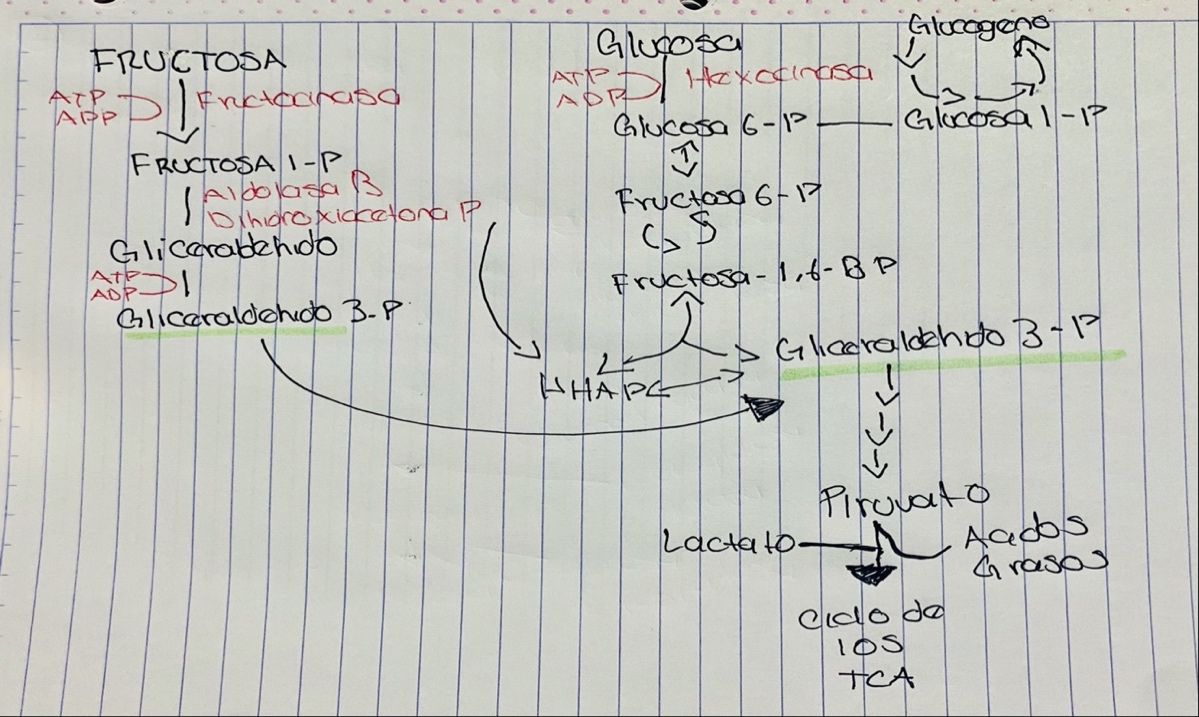 FRUCTOSA
ATP
APP
Fructocinasa
FRUCTOSA 1-P
Aldolasa B
Dihidroxiacetona P
Gliceraldehido
ATP
ADP
Gliceraldehido 3-P
Glucosa
ATP
ADP
Hexocinasa
Glucogeno
Glucosa 6-P
Glucosa 1-P
Fructosa 6-P
Fructosa-1,6-BP
Gliceraldehido 3-P
Piruvato
Lactato
Acidos
Grasos
Ciclo de
los
TCA